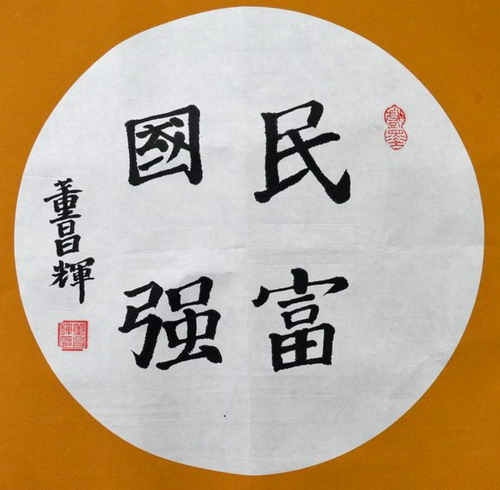 民富
國强
董昌輝